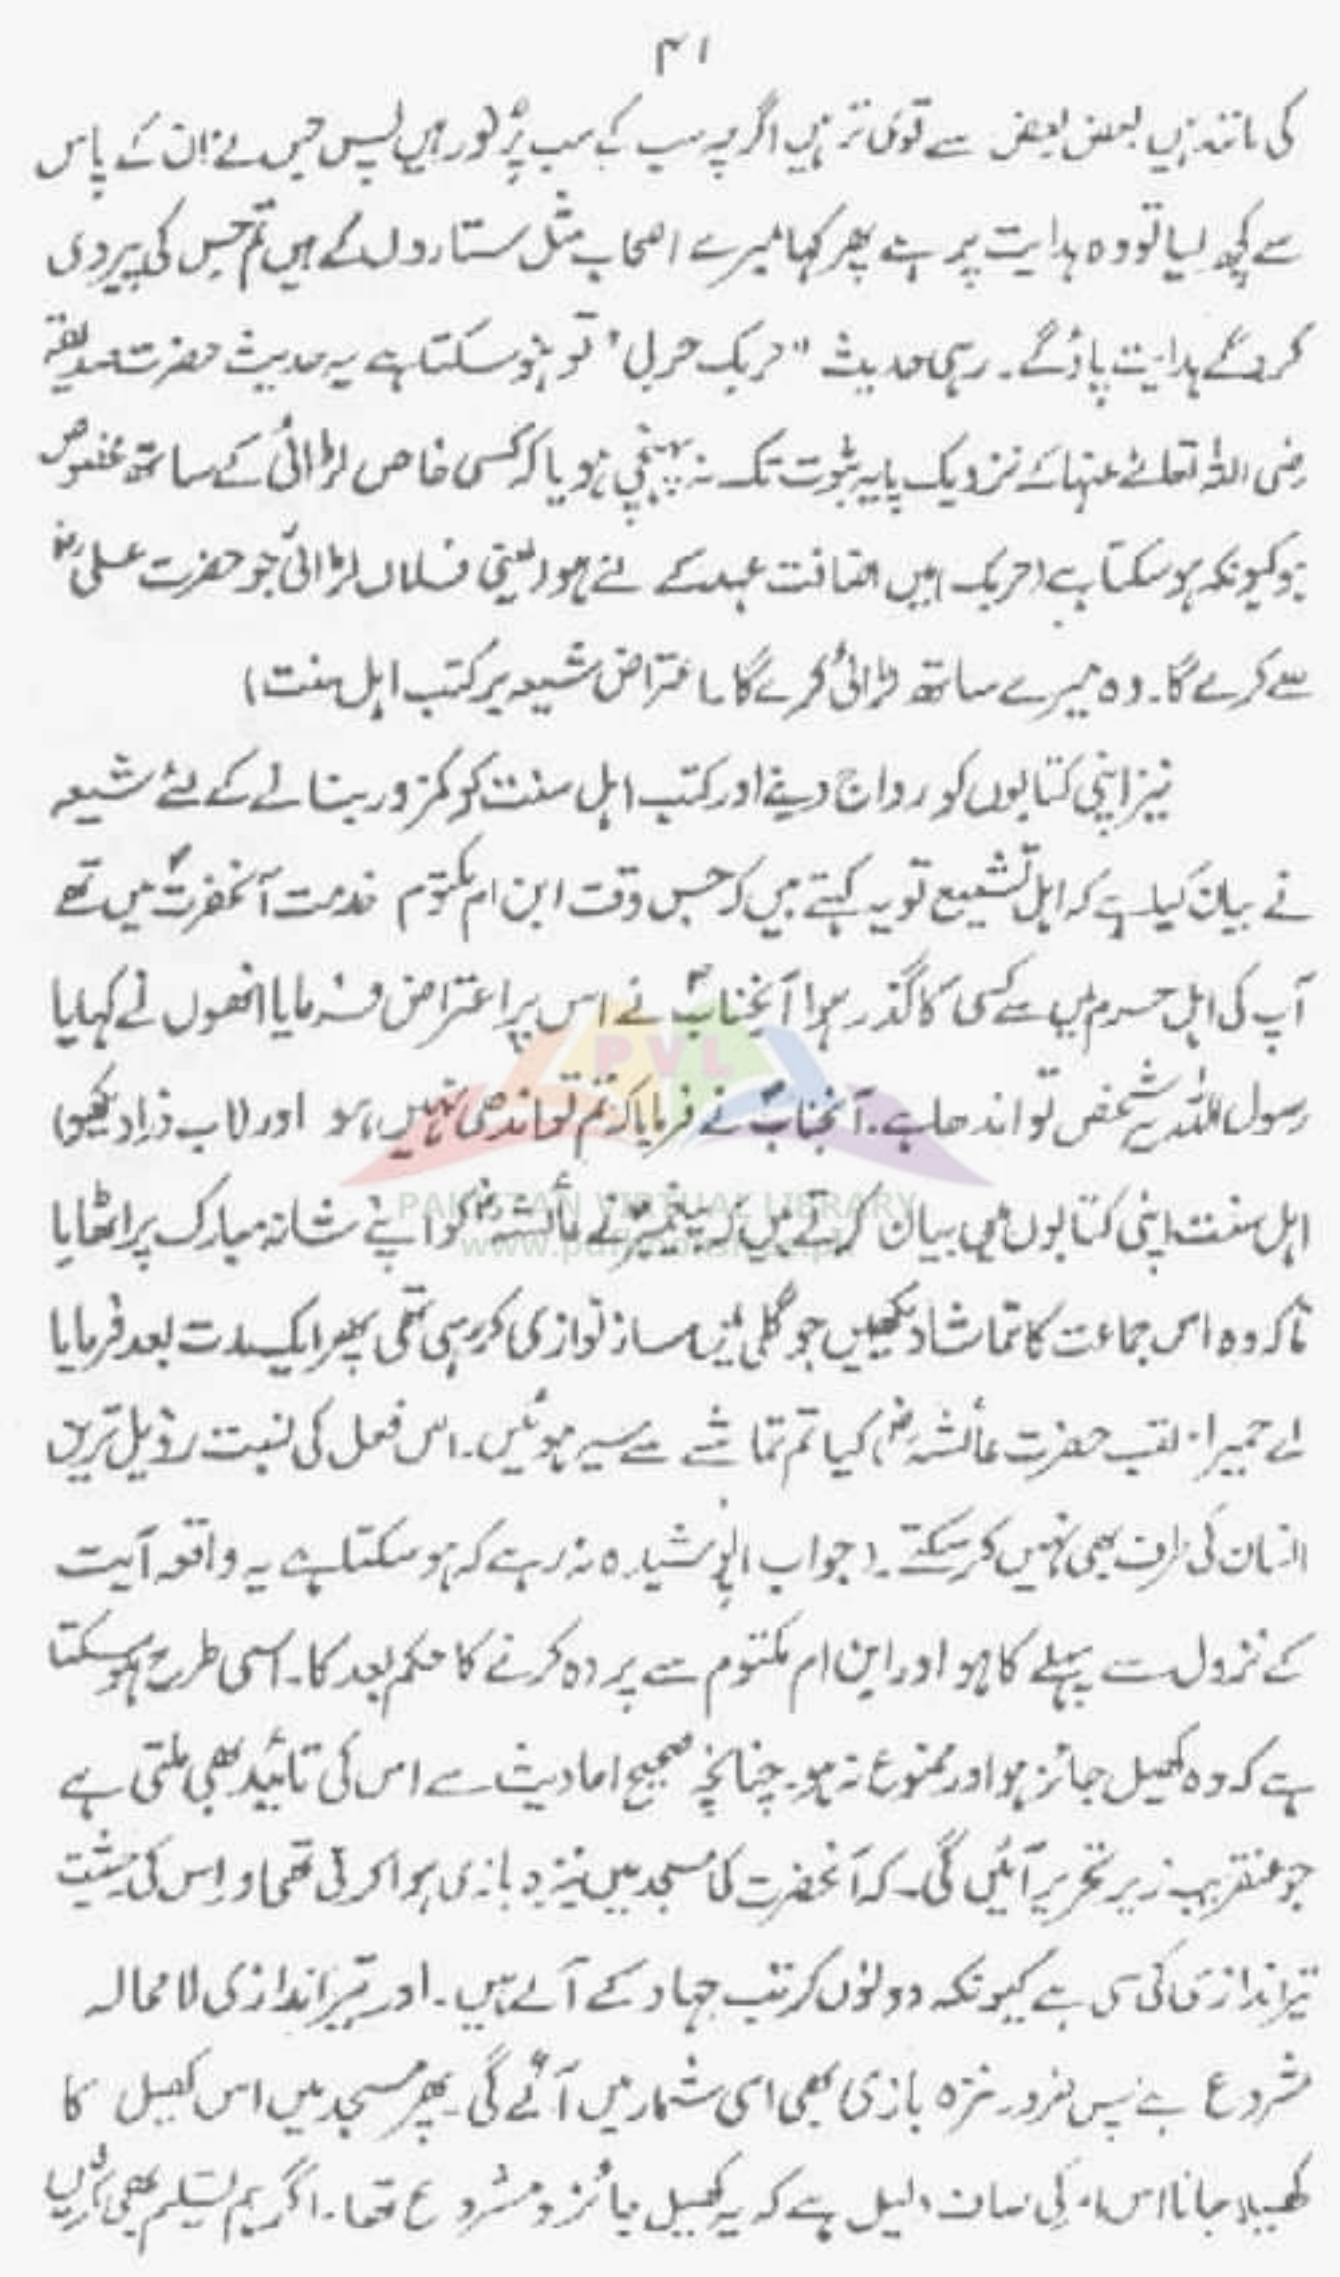 ۴۱
کی مانند ہیں بعض بعض سے قوی تر ہیں اگرچہ سب کے سب پُر نور ہیں پس جس نے ان کے پاس
سے کچھ لیا تو وہ ہدایت پر ہے پھر کہا میرے اصحاب مثل ستاروں کے ہیں تم جس کی پیروی
کروگے ہدایت پاؤگے۔ رہی حدیث "حربک حربی" تو ہو سکتا ہے یہ حدیث حضرت صدیقہ
رضی اللہ تعالےٰ عنہا کے نزدیک پایہ ثبوت تک نہ پہنچی ہو یا کہ کسی خاص لڑائی کے ساتھ مخصوص
ہو کیونکہ ہو سکتا ہے (حربک) میں اضافت عہد کے لئے ہو (یعنی فلاں لڑائی جو حضرت علی رضؓ
سے کرے گا۔ وہ میرے ساتھ لڑائی کرے گا (اعتراض شیعہ بر کتب اہل سنت)
نیز اپنی کتابوں کو رواج دینے اور کتب اہل سنت کو کمزور بنانے کے لئے شیعہ
نے بیان کیا ہے کہ اہل تشیع تو یہ کہتے ہیں کہ جس وقت ابن ام مکتوم خدمت آنحضرتؐ میں تھے
آپ کی اہل حرم میں سے کسی کا گذر ہوا آنجنابؐ نے اس پر اعتراض فرمایا انھوں نے کہا یا
رسول اللہ یہ شخص تو اندھا ہے۔ آنجنابؐ نے فرمایا کہ تم تو اندھی نہیں ہو اور (اب ذرا دیکھو)
PVL
PAKISTAN VIRTUAL LIBRARY
اہل سنت اپنی کتابوں میں بیان کرتے ہیں کہ پیغمبرؐ نے عائشہؓ کو اپنے شانہ مبارک پر اٹھایا
تاکہ وہ اس جماعت کا تماشا دیکھیں جو گلی میں ساز نوازی کر رہی تھی پھر ایک مدت بعد فرمایا
اے حمیرا (لقب حضرت عائشہؓ) کیا تم تماشے سے سیر ہوئیں۔ اس فعل کی نسبت رذیل ترین
انسان کی طرف بھی نہیں کر سکتے۔ (جواب) پوشیدہ نہ رہے کہ ہو سکتا ہے یہ واقعہ آیت
کے نزول سے پہلے کا ہو اور ابن ام مکتوم سے پردہ کرنے کا حکم بعد کا۔ اسی طرح ہو سکتا
ہے کہ وہ کھیل جائز ہو اور ممنوع نہ ہو۔ چنانچہ صحیح احادیث سے اس کی تائید بھی ملتی ہے
جو عنقریب زیر تحریر آئیں گی۔ کہ آنحضرت کی مسجد میں نیزہ بازی ہوا کرتی تھی اور اس کی حیثیت
تیر اندازی کی سی ہے کیونکہ دونوں کرتب جہاد کے آلے ہیں۔ اور تیر اندازی لا محالہ
مشروع ہے پس ضرور نیزہ بازی بھی اسی شمار میں آئے گی۔ پھر مسجد میں اس کھیل کا
کھیلا جانا اس امر کی صاف دلیل ہے کہ یہ کھیل جائز و مشروع تھا۔ اگر ہم تسلیم بھی کرلیں